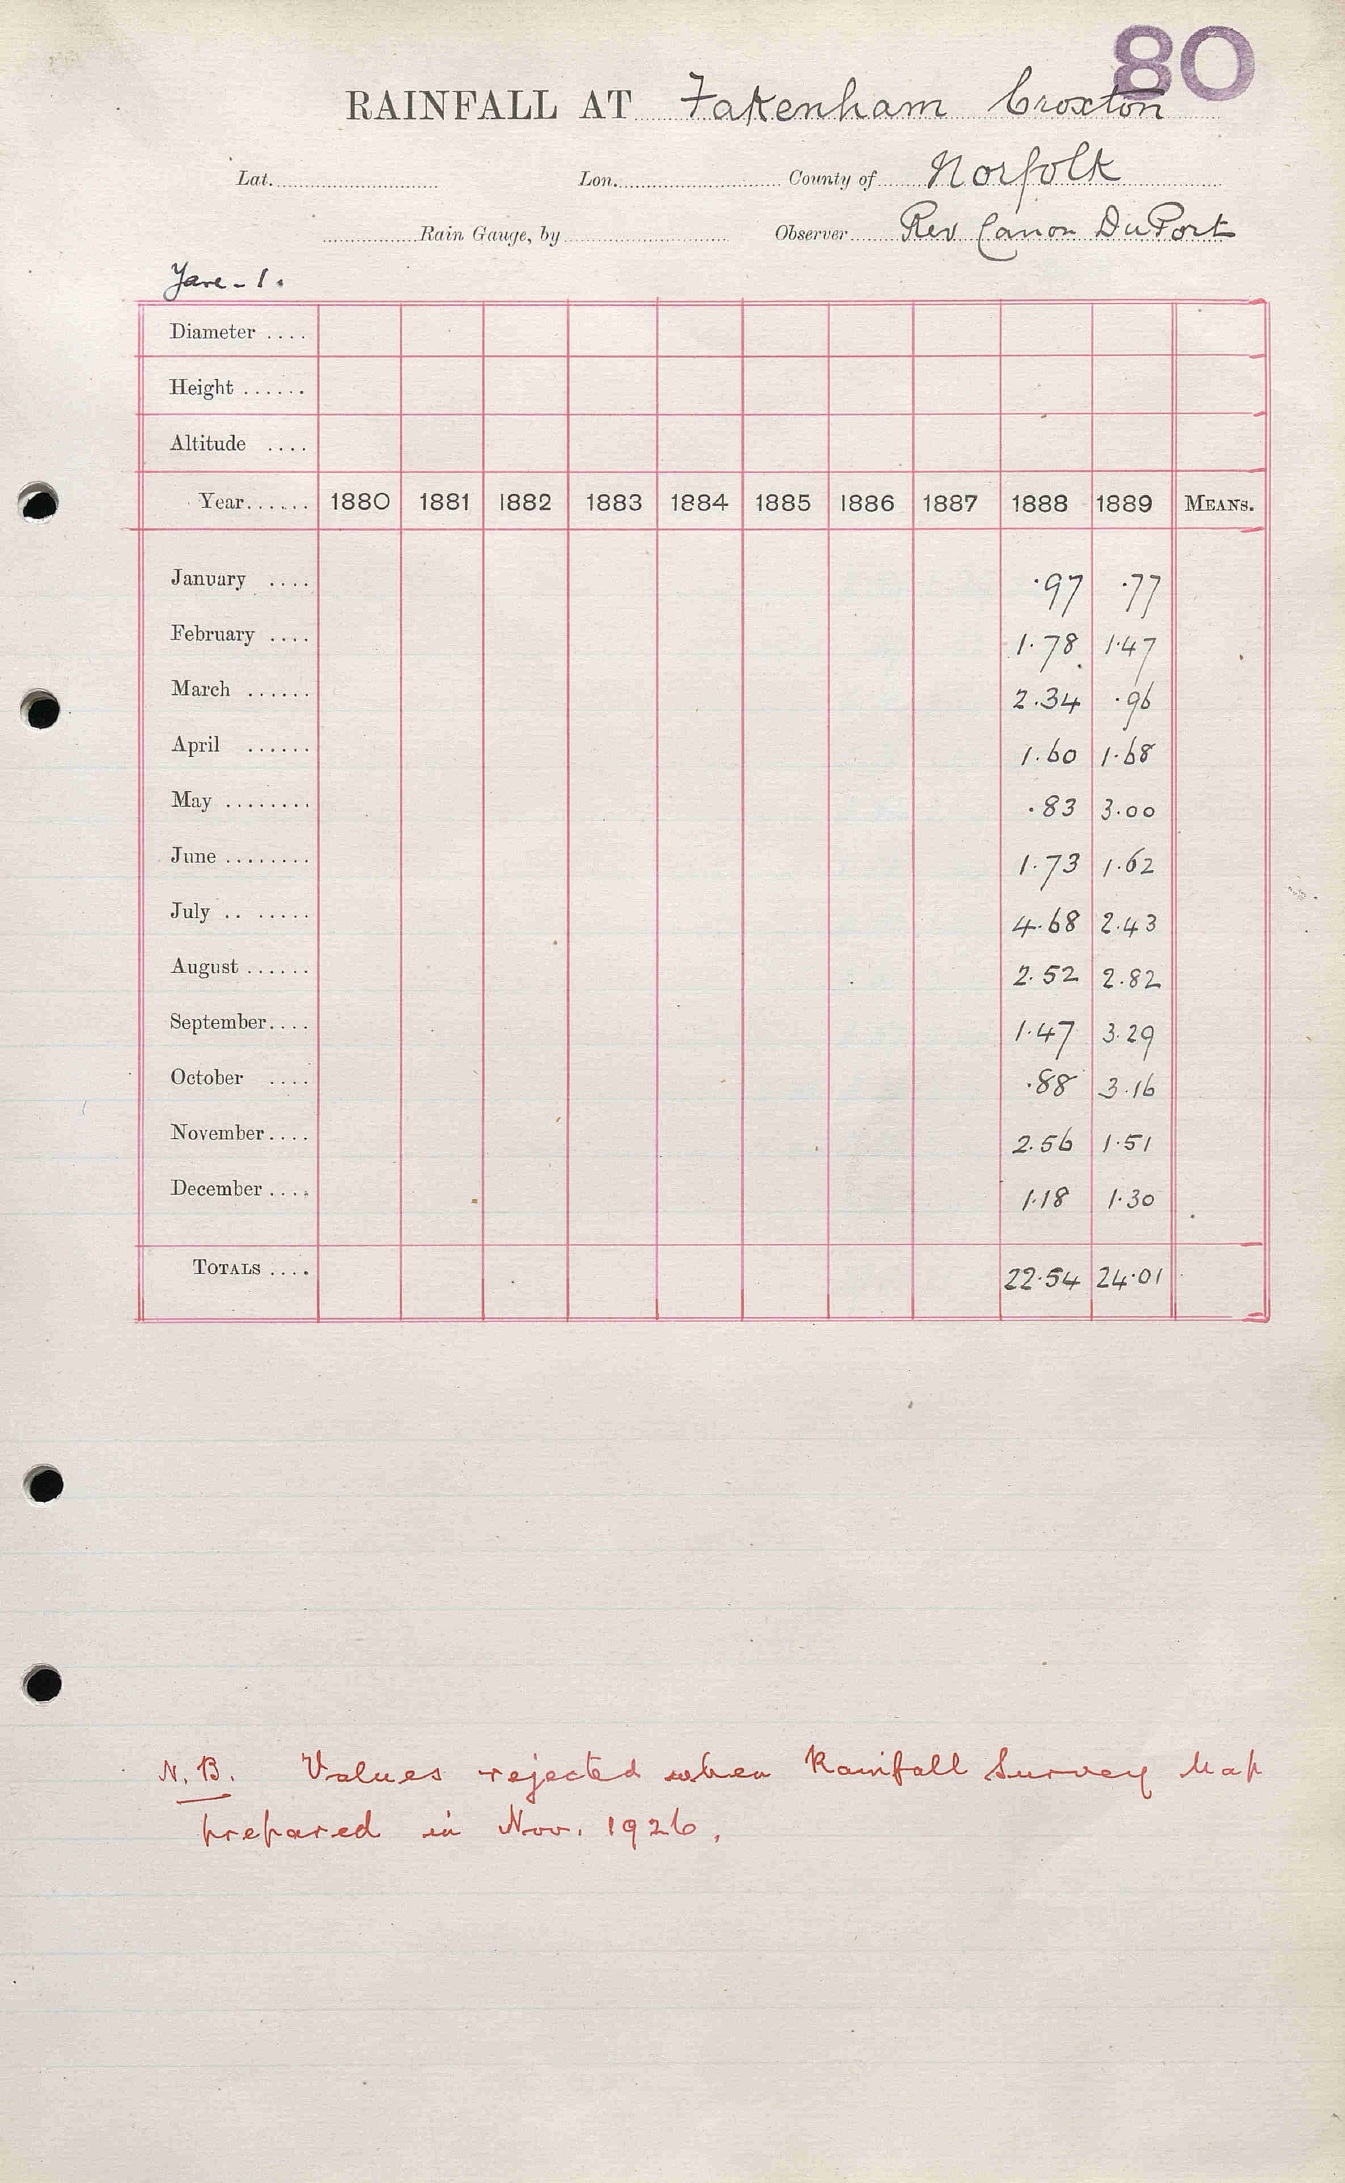 80
RAINFALL AT Fakenham Croxton
Lat. Lon. County of Norfolk
Rain Gauge, by Observer Rev Canon Du Port
Yare - 1.
Diameter ....
Height ......
Altitude ....
Year...... 1880 1881 1882 1883 1884 1885 1886 1887 1888 1889 MEANS.
January .... .97 .77
February .... 1.78 1.47
March ...... 2.34 .96
April ...... 1.60 1.68
May ........ .83 3.00
June ........ 1.73 1.62
July .. ..... 4.68 2.43
August ...... 2.52 2.82
September.... 1.47 3.29
October .... .88 3.16
November.... 2.56 1.51
December .... 1.18 1.30
TOTALS .... 22.54 24.01
N.B. Values rejected when Rainfall Survey Map
prepared in Nov. 1926.